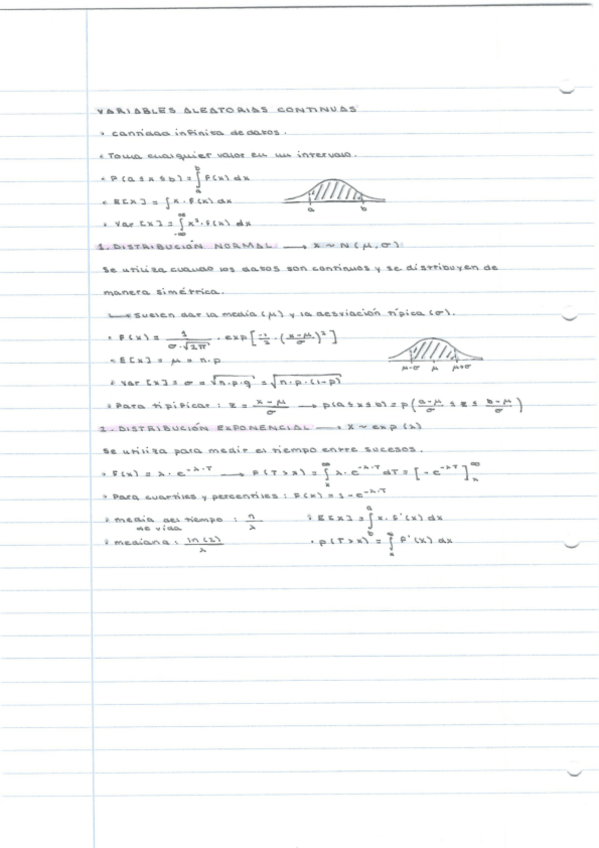 VARIABLES ALEATORIAS CONTINUAS
• cantidad infinita de datos.
• Toma cualquier valor en un intervalo.
• P(a ≤ x ≤ b) = ∫ₐᵇ f(x) dx
a b
• E[x] = ∫ x · f(x) dx
• Var [x] = ∫ x² · f(x) dx
1. DISTRIBUCIÓN NORMAL: → x ~ N(μ, σ)
Se utiliza cuando los datos son continuos y se distribuyen de
manera simétrica.
→ Suelen dar la media (μ) y la desviación típica (σ).
• f(x) = 1/(σ·√2π) · exp[-1/2 · ((x-μ)/σ)²]
μ-σ μ μ+σ
• E[x] = μ = n·p
• Var [x] = σ = √n·p·q = √n·p·(1-p)
• Para tipificar: z = (x-μ)/σ → p(a ≤ x ≤ b) = p((a-μ)/σ ≤ z ≤ (b-μ)/σ)
2. DISTRIBUCIÓN EXPONENCIAL → x ~ exp(λ)
Se utiliza para medir el tiempo entre sucesos.
• f(x) = λ · e^-λ·T → P(T > x) = ∫ₓ^∞ λ · e^-λ·T dT = [-e^-λT]ₓ^∞
• Para cuartiles y percentiles: F(x) = 1 - e^-λ·T
• media del tiempo de vida : n/λ • E[x] = ∫ x · f'(x) dx
• mediana : ln(2)/λ • p(T > x) = ∫ f'(x) dx